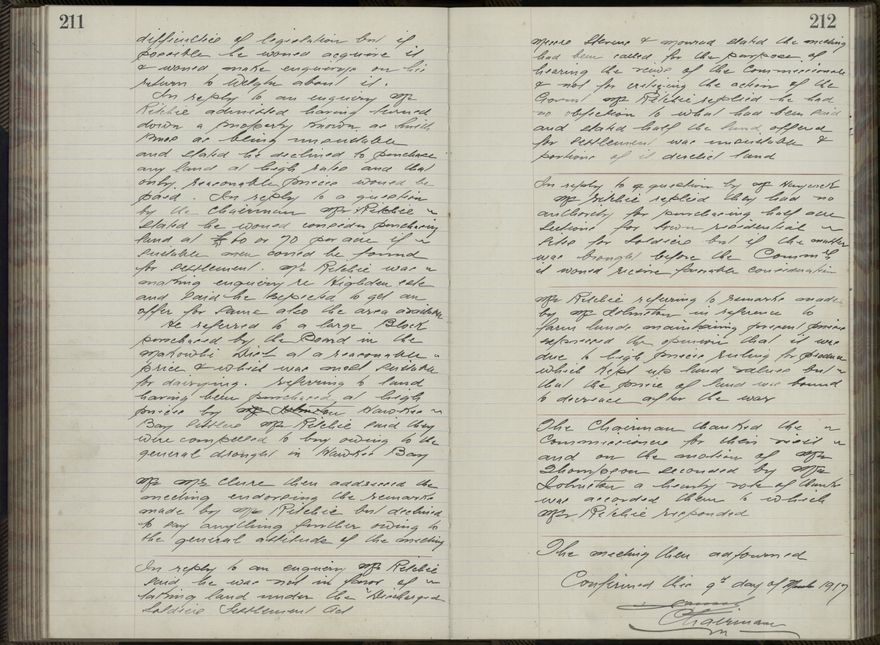 211
difficulties of legislation but if
possible he would acquire it
& would make enquirys on his
return to Welgtn about it.
In reply to an enquiry Mr
Ritchie admitted having turned
down a property known as
as being unsuitable
and stated he declined to purchase
any land at high rates and that
only reasonable prices would be
paid. In reply to a question
by the Chairman Mr Ritchie
stated he would consider purchasing
land at £60 or 70 per acre if
suitable men could be found
for settlement. Mr Ritchie was
making enquiry re Highden este
and said he expected to get an
offer for same also the area available
He referred to a large Block
purchased by the Board in the
Makowhi Dist at a reasonable
price & which was most suitable
for dairying. referring to land
having been purchased at high
prices by Mr Johnston Hawkes
Bay settlers Mr Ritchie said they
were compelled to buy owing to the
general drought in Hawkes Bay
Mr McClure then addressed the
meeting endorsing the remarks
made by Mr Ritchie but declined
to say anything further owing to
the general attitude of the meeting
In reply to an enquiry Mr Ritchie
said he was not in favor of
taking land under the "Discharged
Soldiers Settlement Act
212
Messrs Stevens & Monrad stated the meeting
had been called for the purpose of
hearing the views of the Commissioners
& not for critizing the action of the
Govmt Mr Ritchie replied he had
no objection to what had been said
and stated half the land offered
for settlement was unsuitable &
portions of it derelict land
In reply to a question by Mr
Mr Ritchie replied they had no
authority for purchasing half acre
sections for town residential
sites for soldiers but if the matter
was brought before the Commrs
it would receive favorable consideration
Mr Ritchie referring to remarks made
by Mr Johnston in reference to
farm lands maintaining present prices
expressed the opinion that it was
due to high prices ruling for produce
which kept up land values but
that the price of land was bound
to decrease after the war
The Chairman thanked the
Commissioners for their visit
and on the motion of Mr
Thompson seconded by Mr
Johnston a hearty vote of thanks
was accorded them to which
Mr Ritchie responded
The meeting then adjourned
Confirmed this 9th day of March 1917
Chairman